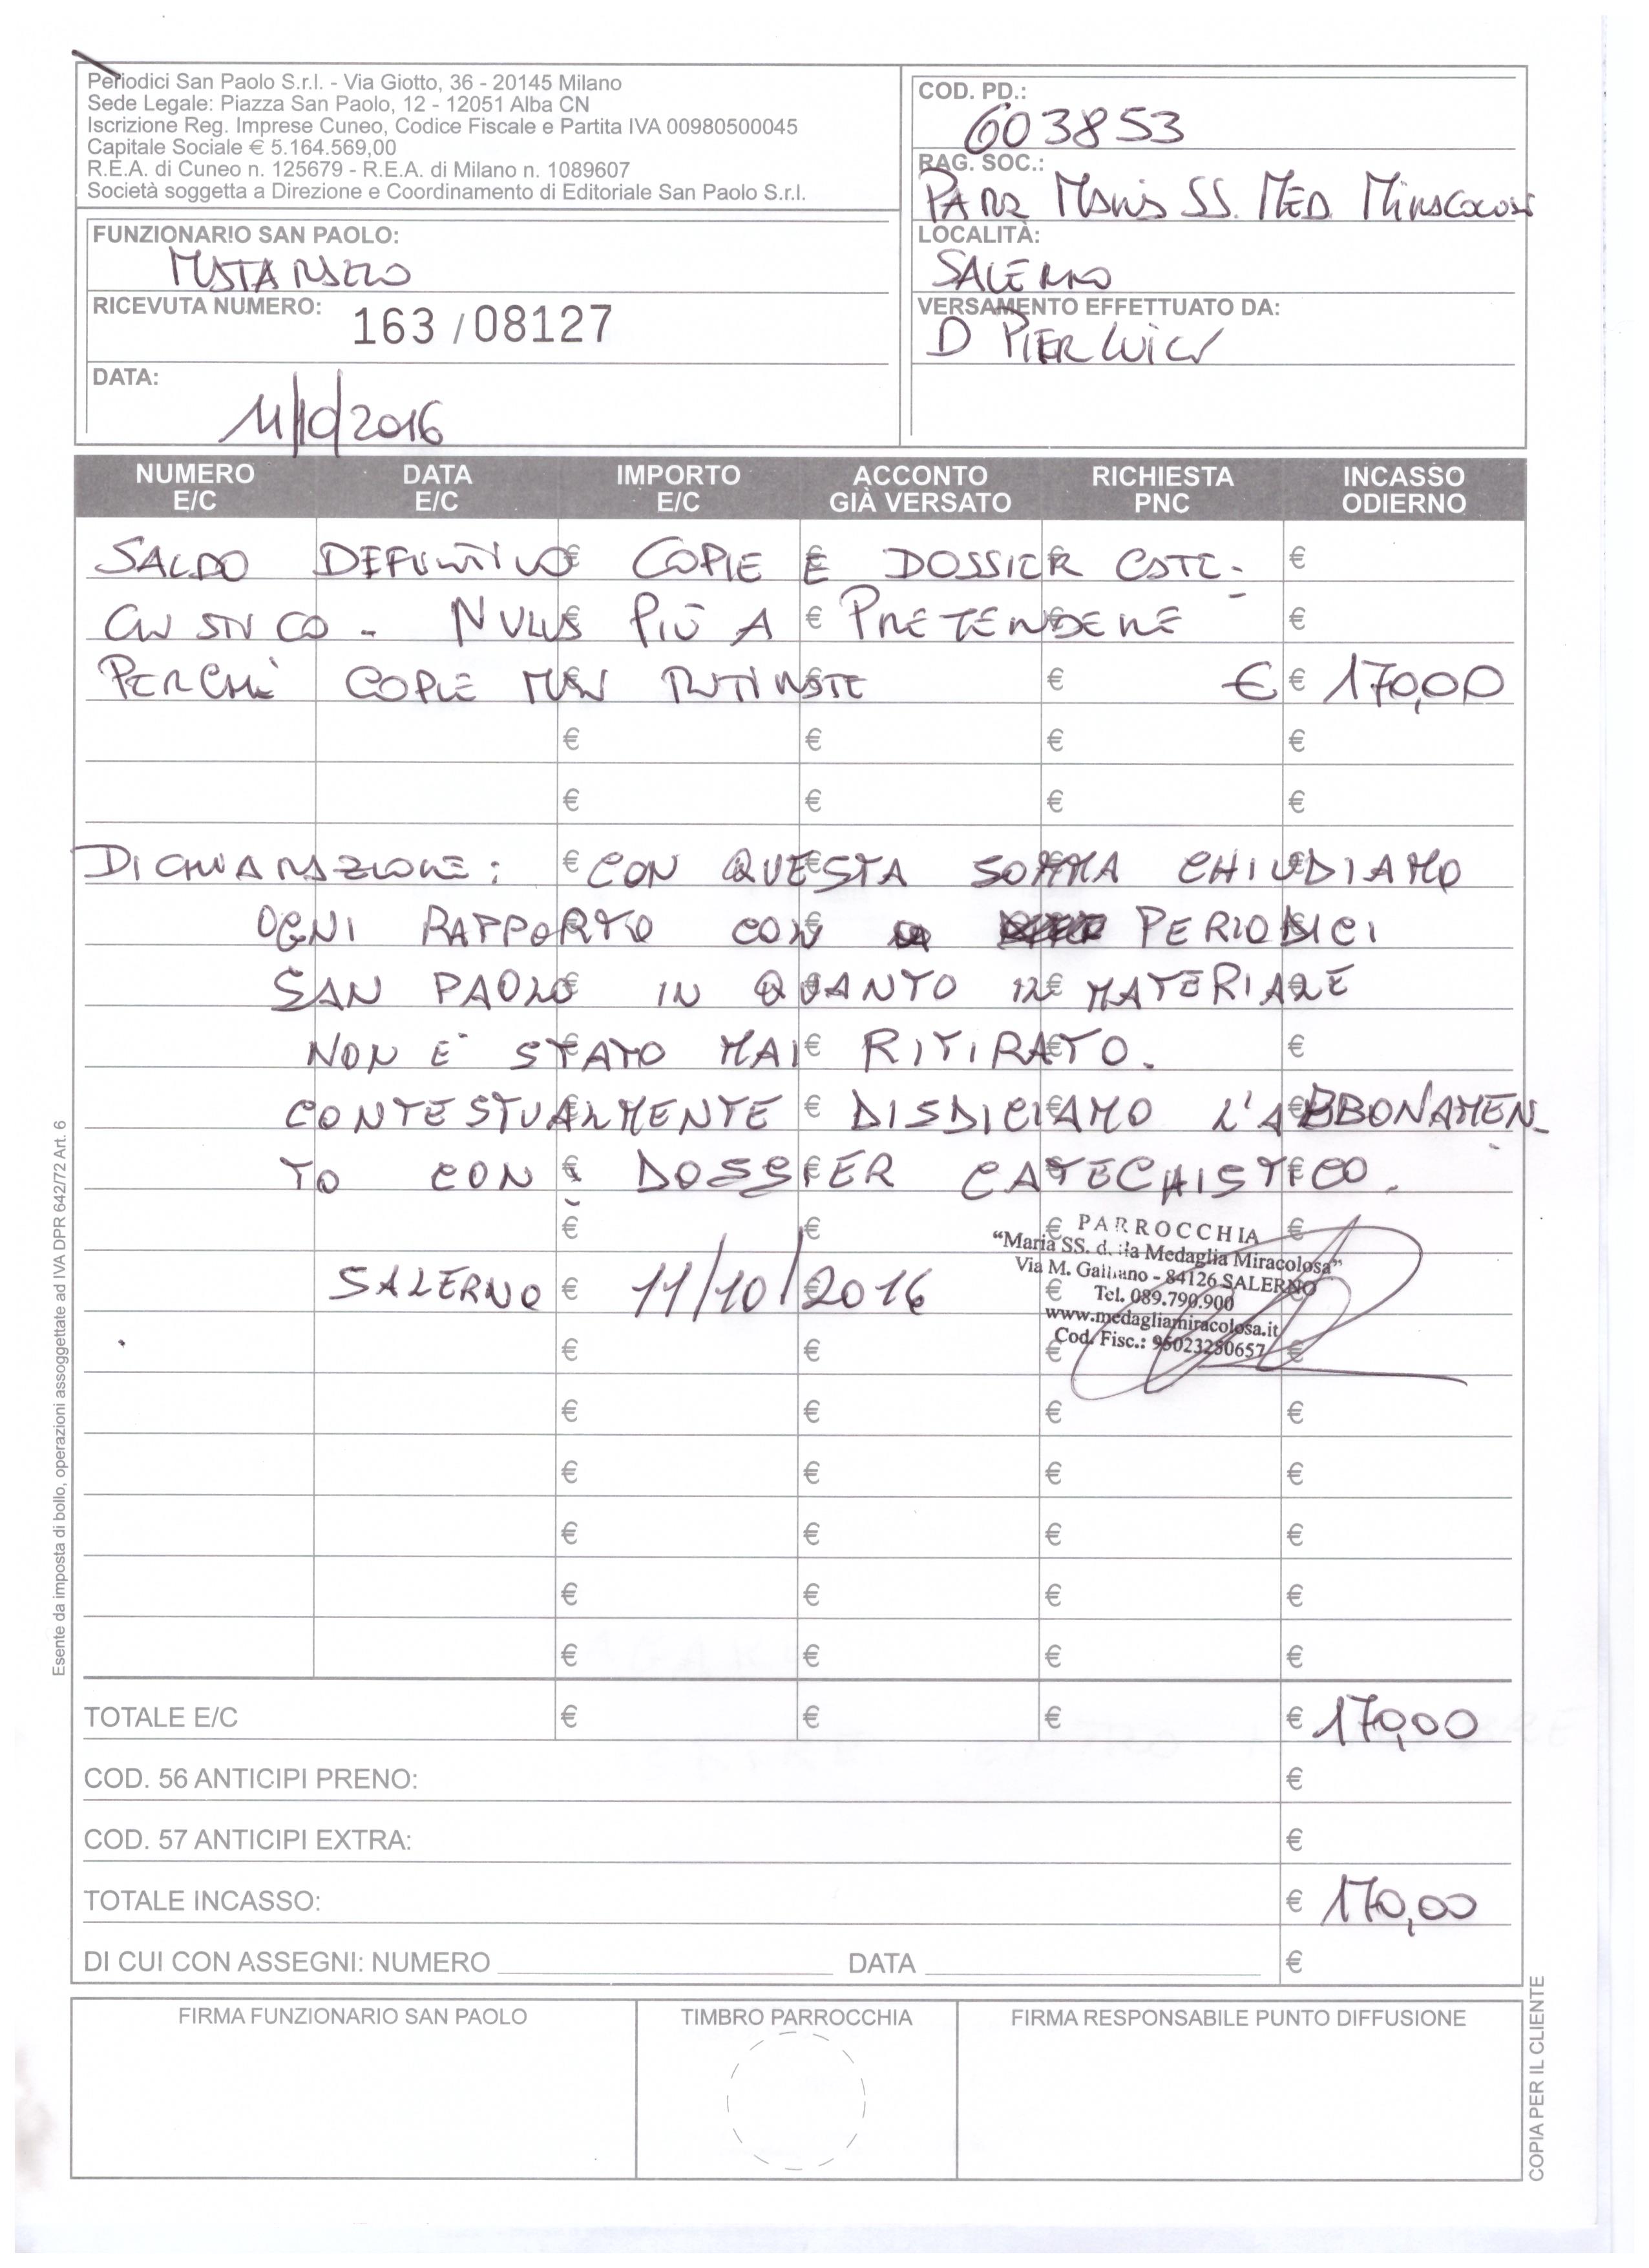 Periodici San Paolo S.r.l. - Via Giotto, 36 - 20145 Milano
Sede Legale: Piazza San Paolo, 12 - 12051 Alba CN
Iscrizione Reg. Imprese Cuneo, Codice Fiscale e Partita IVA 00980500045
Capitale Sociale € 5.164.569,00
R.E.A. di Cuneo n. 125679 - R.E.A. di Milano n. 1089607
Società soggetta a Direzione e Coordinamento di Editoriale San Paolo S.r.l.
FUNZIONARIO SAN PAOLO:
RICEVUTA NUMERO: 163/08127
DATA:
11/10/2016
COD. PD.:
603853
RAG. SOC.:
PARR MARIA SS. MED. MIRACOLOSA
LOCALITÀ:
SALERNO
VERSAMENTO EFFETTUATO DA:
D PIERLUIGI
NUMERO E/C DATA E/C IMPORTO E/C ACCONTO GIÀ VERSATO RICHIESTA PNC INCASSO ODIERNO
SALDO DEFINITIVO COPIE E DOSSIER CATE- €
CHISTICO - NULLA PIÙ A € PRETENDERE €
PERCHÈ COPIE MAI RITIRATE € € € 170,00
€ € € €
€ € € €
DICHIARAZIONE: € CON QUESTA SOMMA CHIUDIAMO
OGNI RAPPORTO CON PERIODICI
SAN PAOLO IN QUANTO IL MATERIALE
NON È STATO MAI € RITIRATO. €
CONTESTUALMENTE € DISDICIAMO L'ABBONAMEN-
TO CON € DOSSIER CATECHISTICO.
€ € € €
SALERNO € 11/10/2016
PARROCCHIA
"Maria SS. della Medaglia Miracolosa"
Via M. Galliano - 84126 SALERNO
€ Tel. 089.790.900
www.medagliamiracolosa.it
€ € € Cod. Fisc.: 95023280657 €
€ € € €
€ € € €
€ € € €
€ € € €
€ € € €
TOTALE E/C € € € € 170,00
COD. 56 ANTICIPI PRENO: €
COD. 57 ANTICIPI EXTRA: €
TOTALE INCASSO: € 170,00
DI CUI CON ASSEGNI: NUMERO DATA €
FIRMA FUNZIONARIO SAN PAOLO TIMBRO PARROCCHIA FIRMA RESPONSABILE PUNTO DIFFUSIONE
Esente da imposta di bollo, operazioni assoggettate ad IVA DPR 642/72 Art. 6
COPIA PER IL CLIENTE